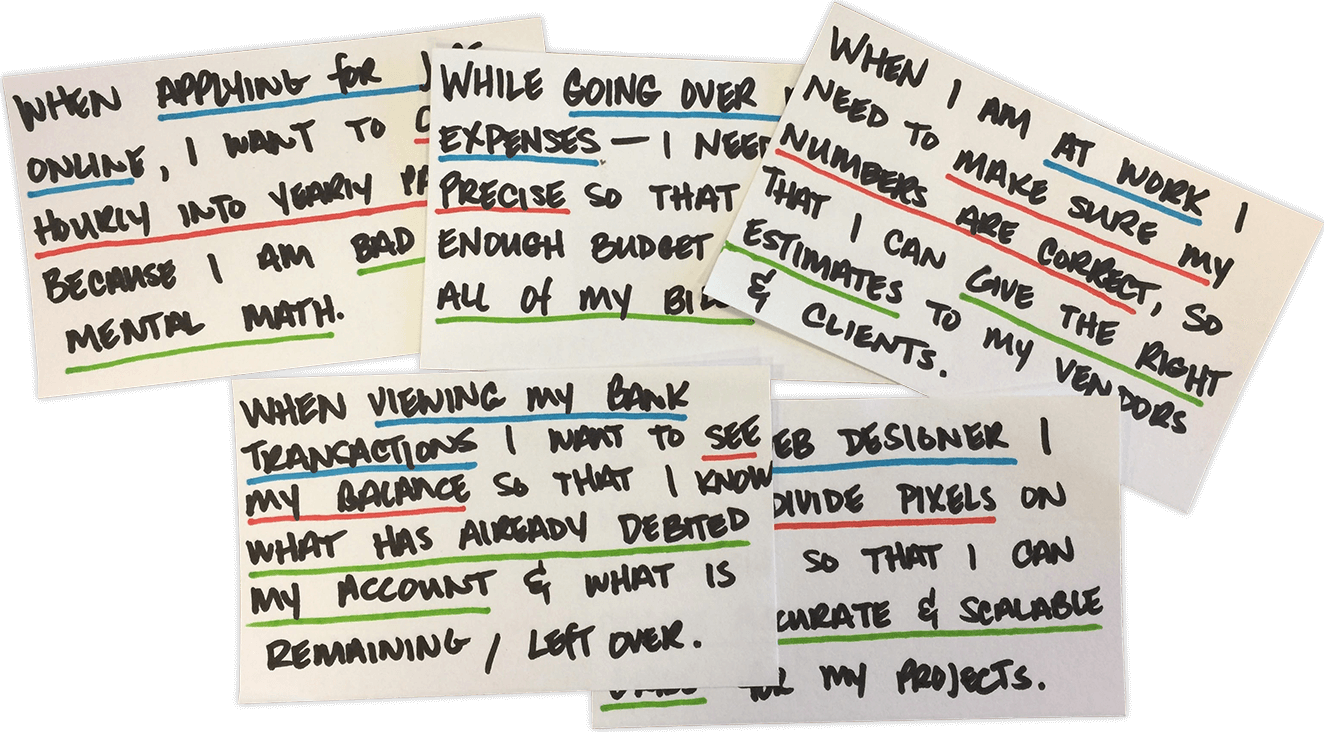 WHEN APPLYING for
ONLINE, I WANT TO
HOURLY INTO YEARLY
BECAUSE I AM BAD
MENTAL MATH.
WHILE GOING OVER
EXPENSES — I NEED
PRECISE SO THAT
ENOUGH BUDGET
ALL Of MY
WHEN I AM AT WORK I
NEED TO MAKE SURE MY
NUMBERS ARE CORRECT, SO
THAT I CAN GIVE THE RIGHT
ESTIMATES TO MY VENDORS
& CLIENTS.
WHEN VIEWING MY BANK
TRANSACTIONS I WANT TO SEE
MY BALANCE SO THAT I KNOW
WHAT HAS ALREADY DEBITED
MY ACCOUNT & WHAT IS
REMAINING / LEFT OVER.
DESIGNER I
DIVIDE PIXELS ON
SO THAT I CAN
& SCALABLE
MY PROJECTS.